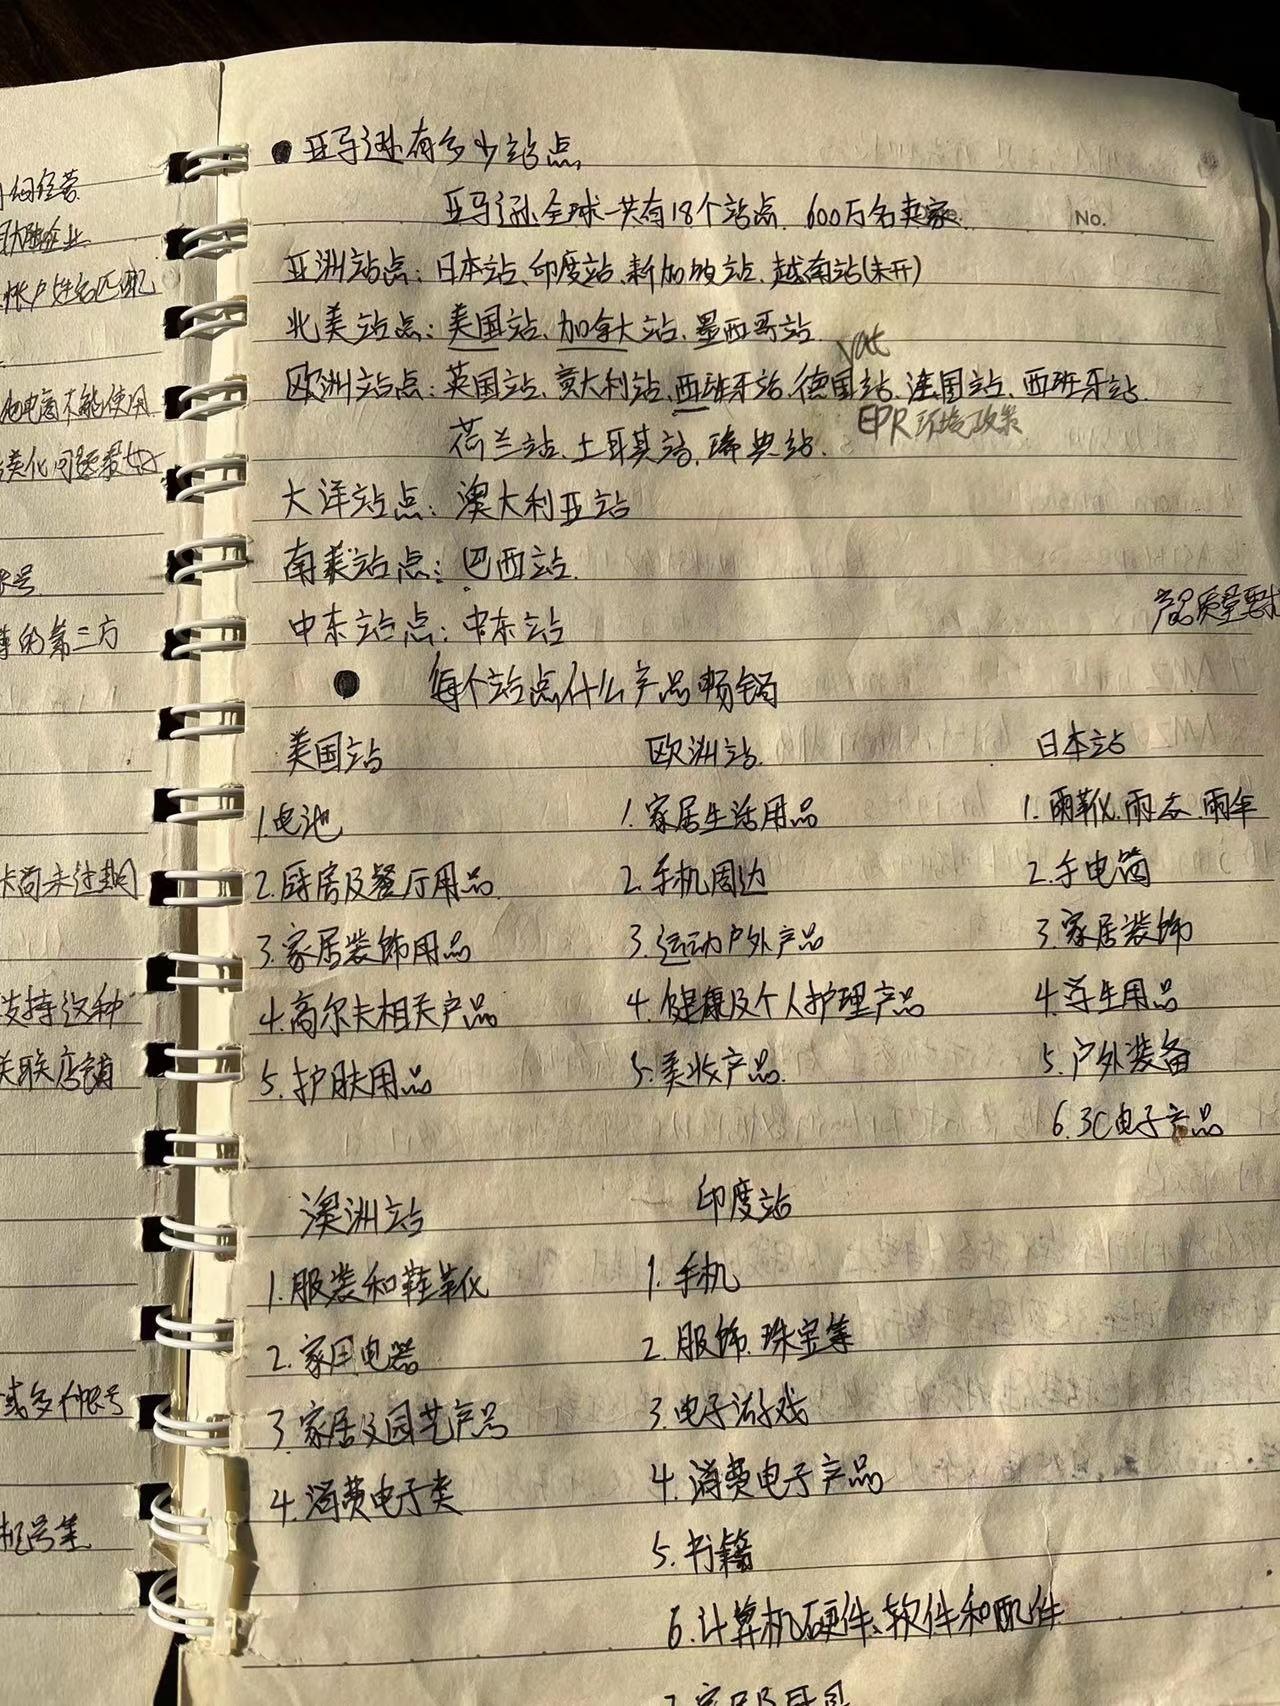 ●亚马逊有多少站点
亚马逊全球一共有18个站点、600万名卖家
No.
亚洲站点：日本站、印度站、新加坡站、越南站(未开)
北美站点：美国站、加拿大站、墨西哥站
vat
欧洲站点：英国站、意大利站、西班牙站、德国站、法国站、西班牙站
EPR环境政策
荷兰站、土耳其站、瑞典站.
大洋站点：澳大利亚站
南美站点：巴西站.
中东站点：中东站
产品质量要求
●每个站点什么产品畅销
美国站
1.电池
2.厨房及餐厅用品
3.家居装饰用品
4.高尔夫相关产品
5.护肤用品
欧洲站.
1.家居生活用品
2.手机周边
3.运动户外产品
4.健康及个人护理产品
5.美妆产品.
日本站
1.雨靴.雨衣.雨伞
2.手电筒
3.家居装饰
4.学生用品
5.户外装备
6.3C电子产品
澳洲站
1.服装和鞋靴
2.家用电器
3.家居及园艺产品
4.消费电子类
印度站
1.手机
2.服饰.珠宝等
3.电子游戏
4.消费电子产品
5.书籍
6.计算机硬件、软件和配件
帐户姓名匹配
电商不能使用
的第三方
支持这种
关联店铺
或多个帐号
机号等